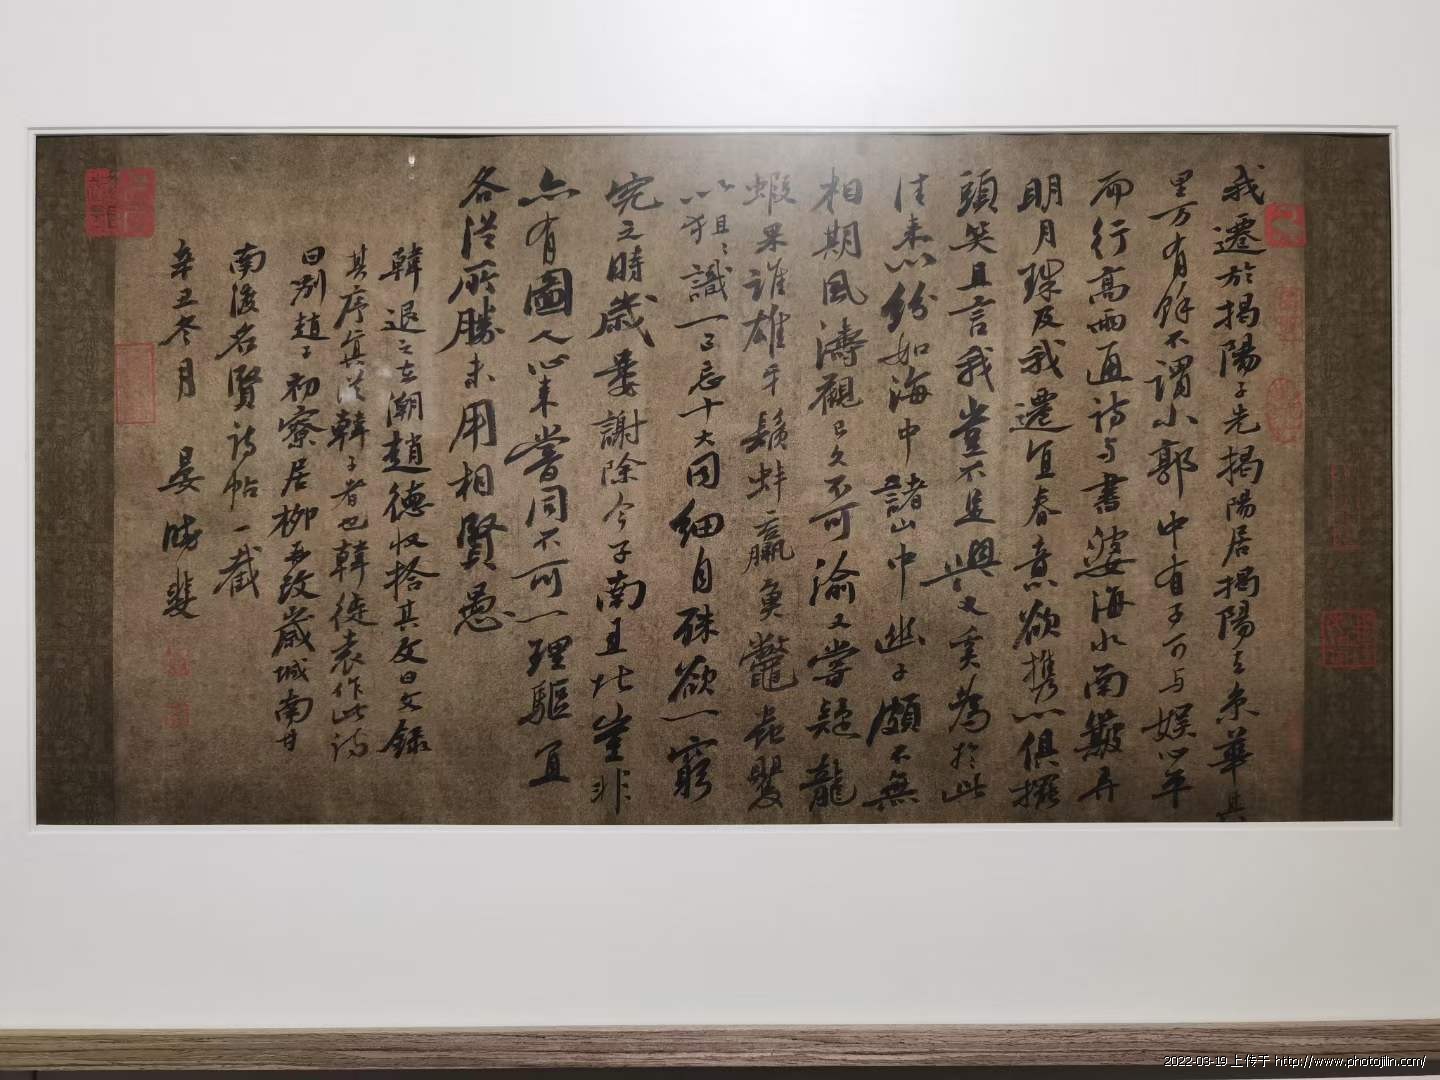 我遷於揭陽子先揭陽居揭陽去京華其
里万有餘不謂小郭中有子可与娱心平
而行高兩通詩与書婆娑海水南簸弄
明月珠及我遷宜春意欲携以俱擺
頭笑且言我豈不足與又奚為於此
往来以紛如海中諸山中幽子頗不無
相期風濤觀已久不可渝又嘗疑龍
蝦果誰雄牙鬚蚌蠃魚鼈虫瞿
以狙〻識一已忘十大同細自殊欲一窮
究之時歲屢謝除今子南且北豈非
亦有圖人心未嘗同不可一理驅宜
各從所勝未用相賢愚
韓退之在潮趙德收拾其文曰文録
其序真從韓子者也韓徙袁作此詩
曰别趙子初寮居柳再改歲城南甘
南渡名賢詩帖一截
辛丑冬月 晏晓斐
2022-03-19 上传于 http://www.photojilin.com/